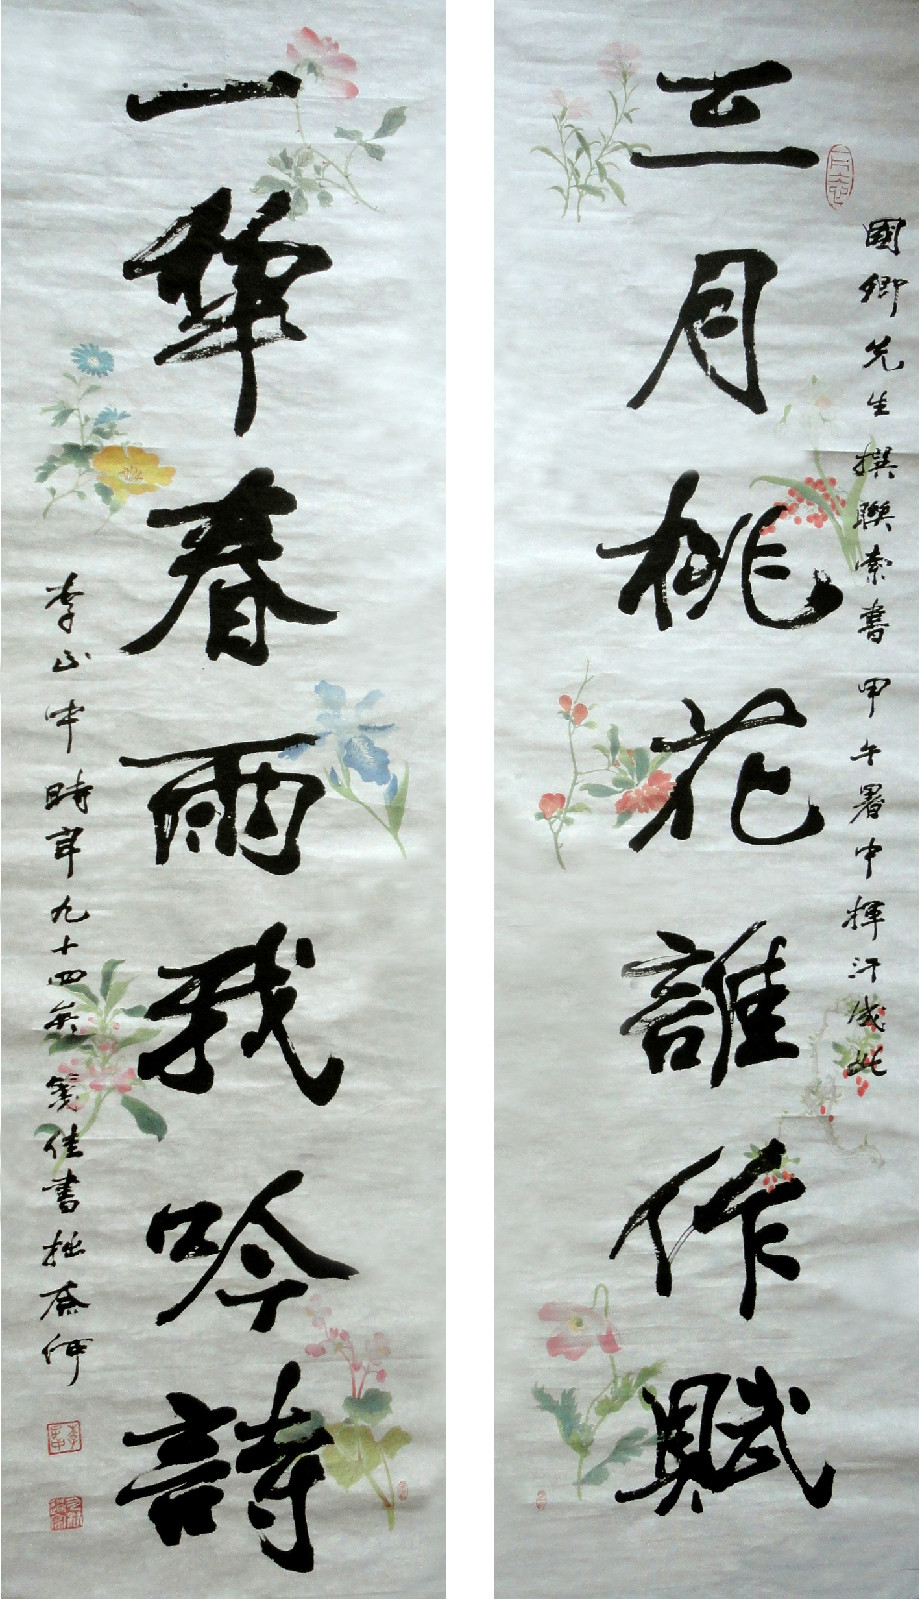 國卿先生撰聯索書甲午暑中揮汗成此
三月桃花誰作賦
一犂春雨我吟詩
李正中時年九十四矣箋佳書拙奈何